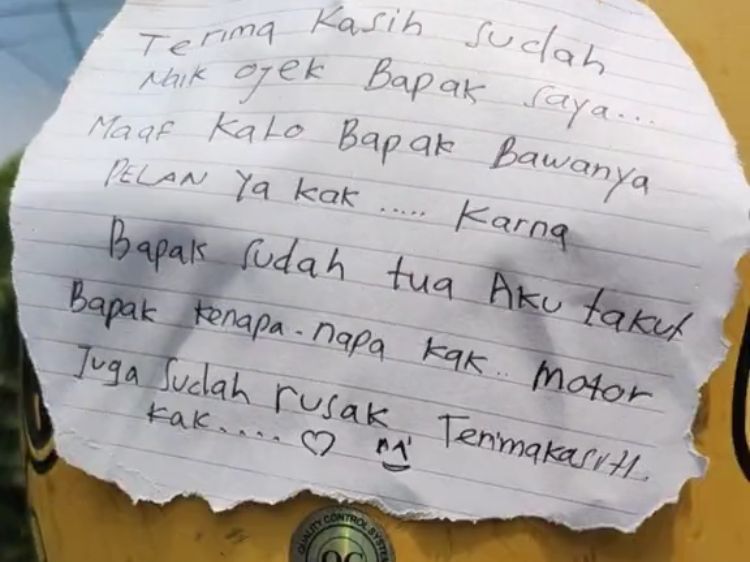 Terima Kasih sudah
Naik ojek Bapak saya...
Maaf Kalo Bapak Bawanya
PELAN Ya kak ..... Karna
Bapak sudah tua Aku takut
Bapak kenapa-napa kak.. motor
Juga Sudah rusak Terimakasih.
kak.... ♡
QUALITY CONTROL SYSTEM
QC